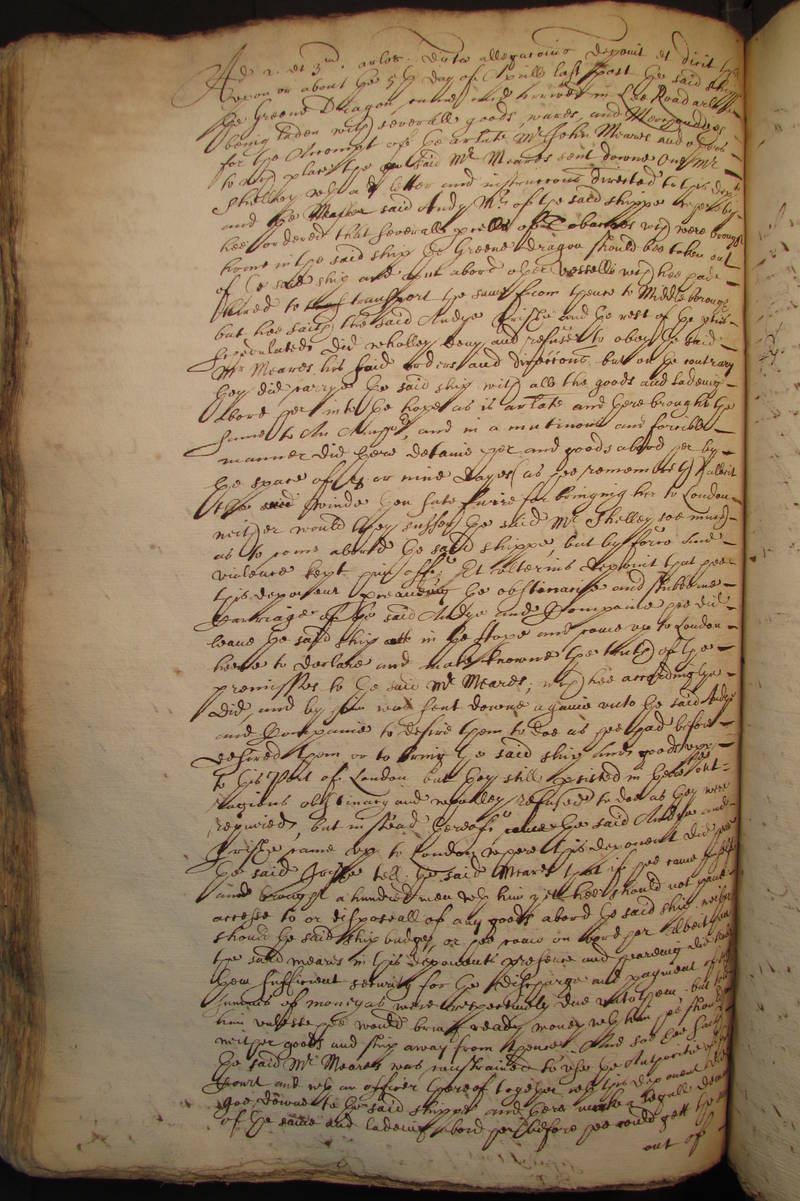 Ad 2. et 3um. arlos. dicte allegacionis deponit et dicit that
upon or about the 5th day of Aprill last past the said shipp
the Greene Dragon came and arrived in Lee Road arlate
being laden with severall goods, wares, and Merchandizes
for the Accompt of the arlate Mr John Meares and
to and place the said Mr Meares sent downe one Mr
Shelley with a letter and instructions directed to this deponent
and the said Andye Mr of the said shippe whereby
hee ordered that severall parcells of Tobaccoes which were brought
home in the said ship the Greene dragon should bee taken out
of the said ship and put abord other vessells which hee had
hired to transport the same from thence to Middleborough
but hee saith the said Andye Crispe and the rest of the
did wholley deny and refuse to obey the said
Mr Meares his said orders and directions but on the contrary
they did carrye the said ship with all the goods and ladeing
abord her into the hope as is arlate and there brought the
same to An Anchor, and in a mutinous and forcible
manner did there detaine her and goods abord her by
the space of 8 or nine dayes (as hee remembreth) albeit
the winde then sate faire for bringing her to London
neither would they suffer the said Mr Shelley soe much
as to come abord the said shippe, but by force and
violence kept him off. Et ulterius deponit that hee
this deponent perceaving the obstinacie and stubborne
carriage of the said Andye and Companie hee did
leave the said ship in the Hope and came up to London
heere to declare and make knowne the truth of the
premisses to the said Mr Meares, which hee accordingly
did, and by him was sent downe againe unto the said Andye
and Companie to desire them to doe as hee had before
desired them or to bring the said ship and goods upp
to this Port of London but they still persisted in their
obstinacy and wholley refused to doe as they were
required, but instead thereof the said Andye and
Crispe came up to London where this deponent did heare
the said Crispe tell the said Meares that if hee came himselfe
and brought a hundred men with him yet hee should not have
accesse to or disposeall of any goods abord the said ship neither
should the said ship budge, or hee come on bord her albeit
the said Meares in this deponents presence and heareing did
them sufficient security for the discharge and payment of
summes of money as were respectively due unto them, but told
him unlesse hee would bring ready money with him hee should
neither goods and ship away from thence. And soe hee saith
the said Mr Meares was constrained to use the Authoritie of this
Court and with an officer thereof together with this deponent did
goe downe to the said shippe and there make a legall demand
of the same and ladeing abord her before hee could gett the
out of